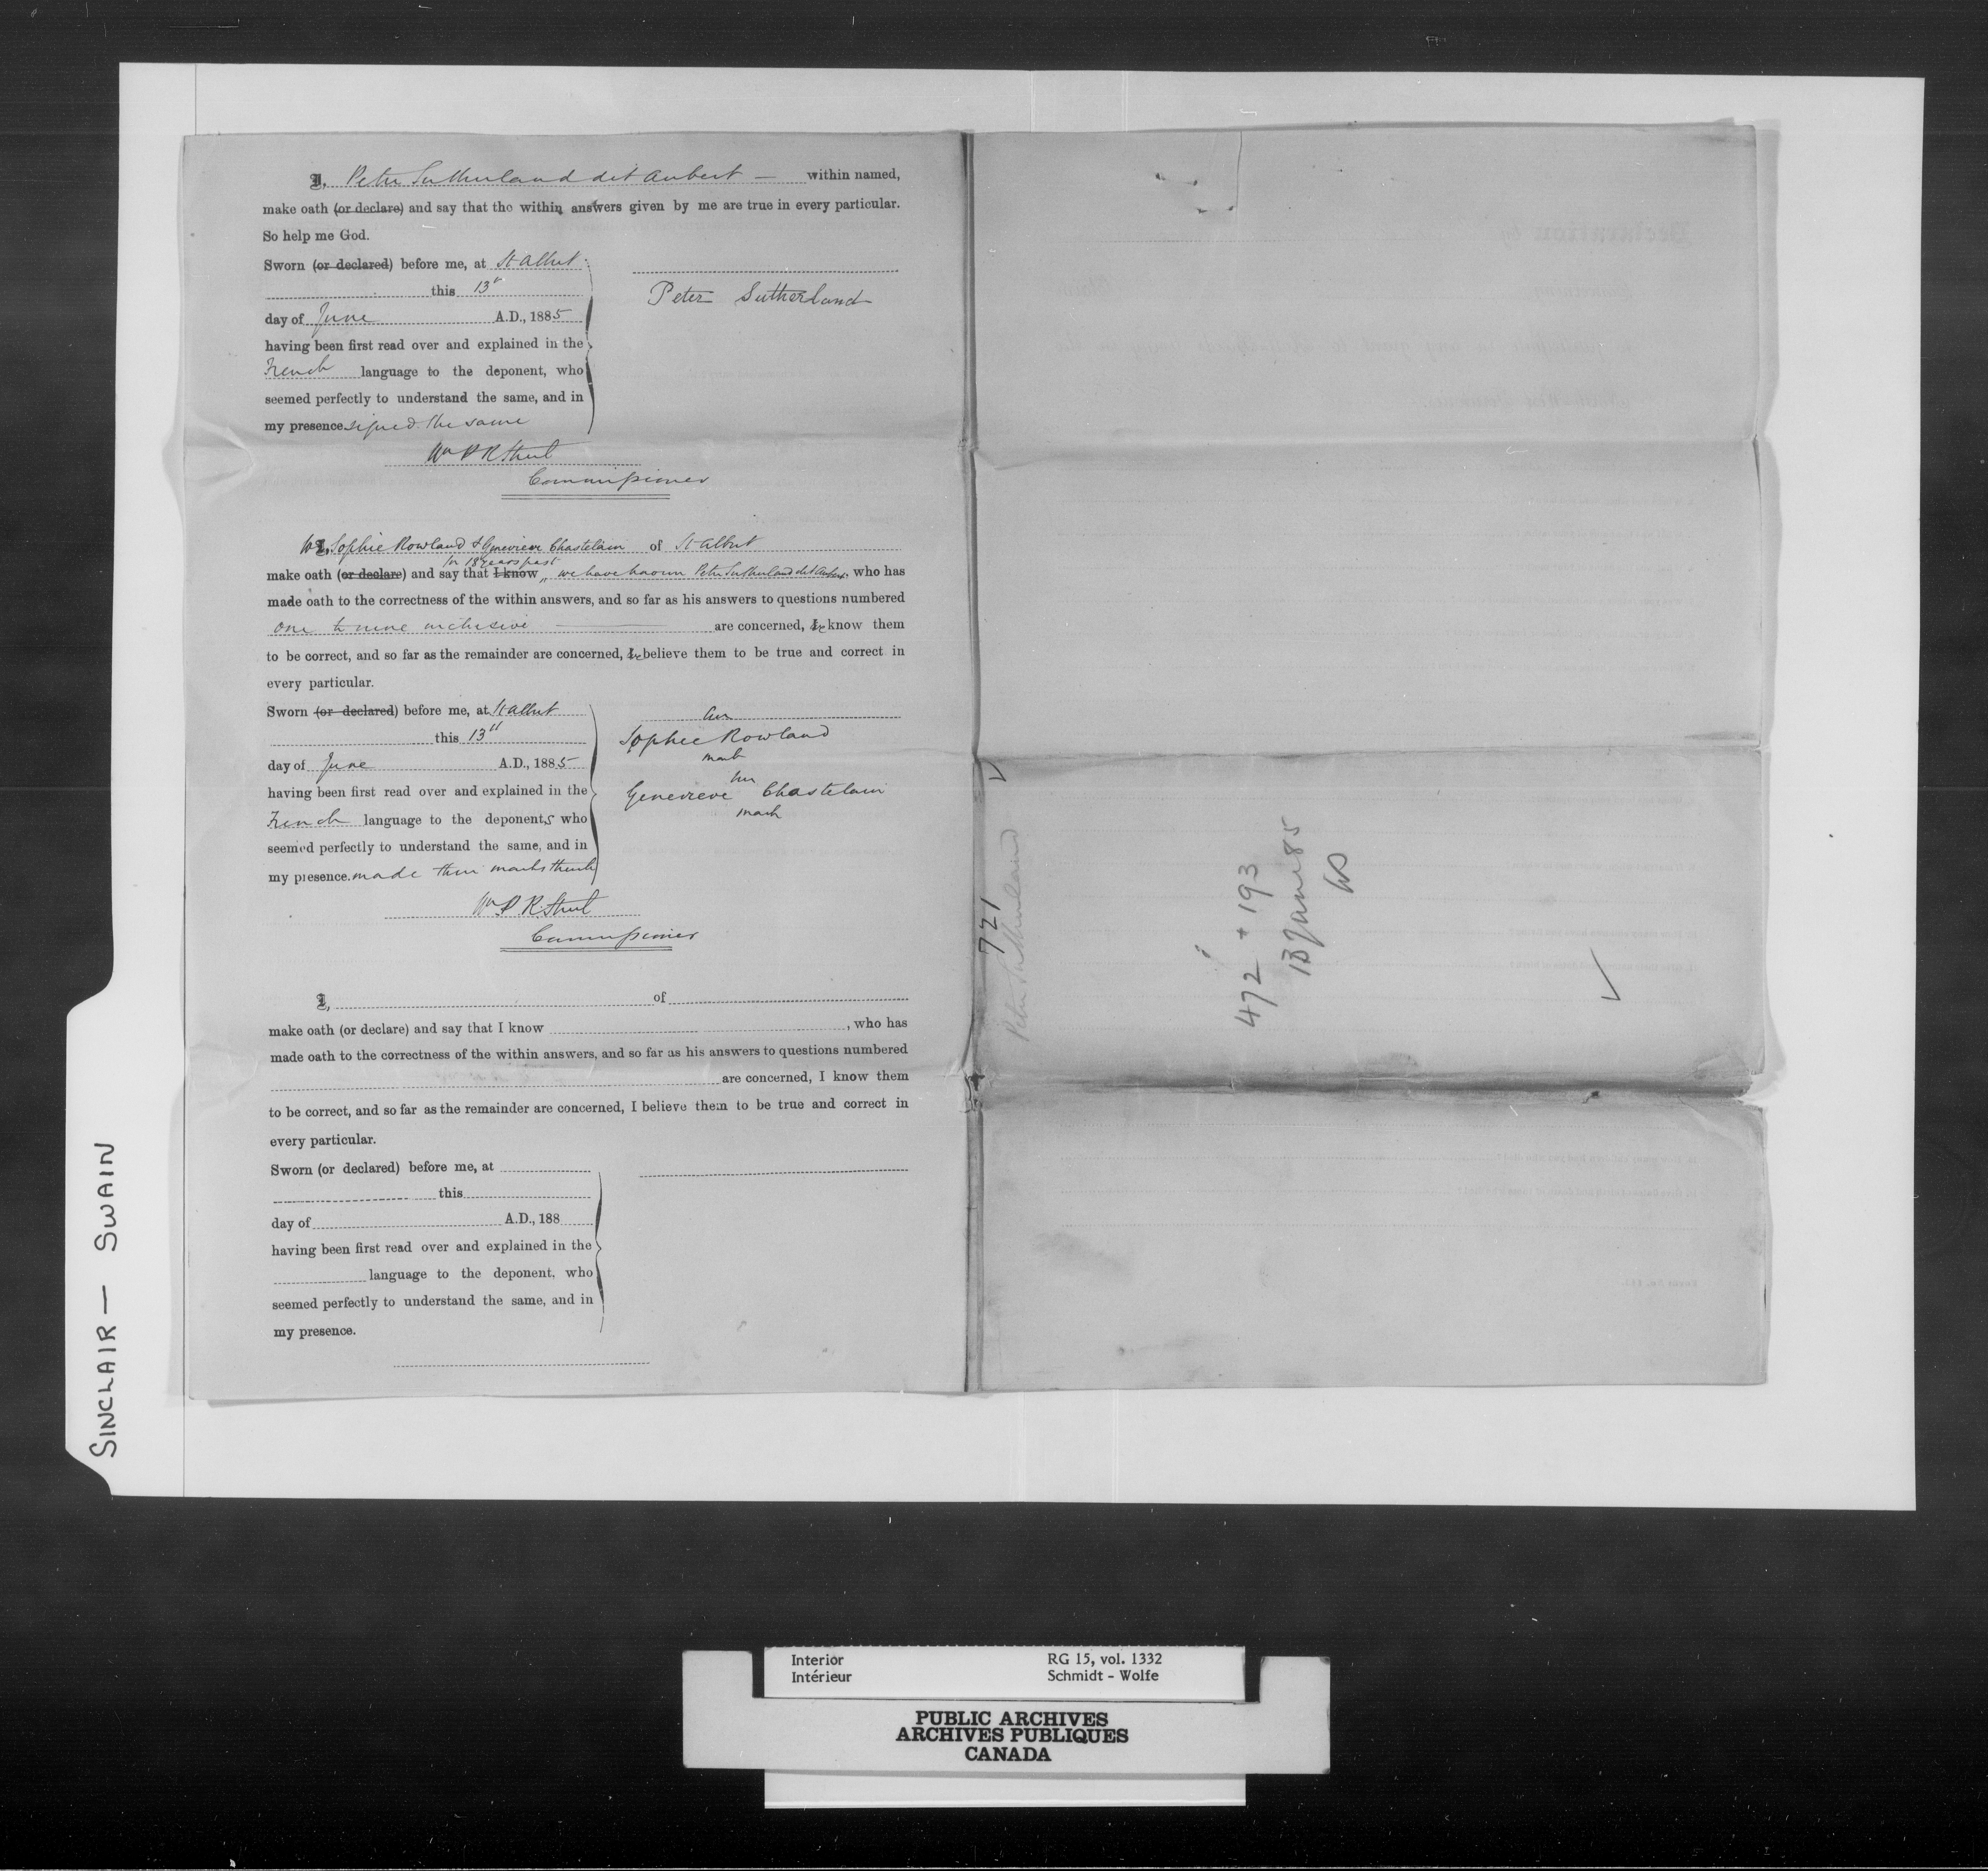 I, Peter Sutherland dit Aubert — within named,
make oath (or declare) and say that the within answers given by me are true in every particular.
So help me God.
Sworn (or declared) before me, at St Albert
this 13th
day of June A.D., 1885
having been first read over and explained in the
French language to the deponent, who
seemed perfectly to understand the same, and in
my presence signed the same
Peter Sutherland
Wm P R Street
Commissioner
We I, Sophie Rowland & Genevieve Chastelain of St Albert
for 18 years past
make oath (or declare) and say that I know we have known Peter Sutherland dit Aubert who has
made oath to the correctness of the within answers, and so far as his answers to questions numbered
one to nine inclusive are concerned, we know them
to be correct, and so far as the remainder are concerned, we believe them to be true and correct in
every particular.
Sworn (or declared) before me, at St Albert
this 13th
day of June A.D., 1885
having been first read over and explained in the
French language to the deponents who
seemed perfectly to understand the same, and in
my presence. made their marks thereto
her
Sophie Rowland
mark
her
Genevieve Chastelain
mark
Wm P R Street
Commissioner
I, of
make oath (or declare) and say that I know , who has
made oath to the correctness of the within answers, and so far as his answers to questions numbered
are concerned, I know them
to be correct, and so far as the remainder are concerned, I believe them to be true and correct in
every particular.
Sworn (or declared) before me, at
this
day of A.D., 188
having been first read over and explained in the
language to the deponent, who
seemed perfectly to understand the same, and in
my presence.
721
Peter Sutherland
472 + 193
13 June 85
WS
SINCLAIR — SWAIN
Interior RG 15, vol. 1332
Intérieur Schmidt - Wolfe
PUBLIC ARCHIVES
ARCHIVES PUBLIQUES
CANADA